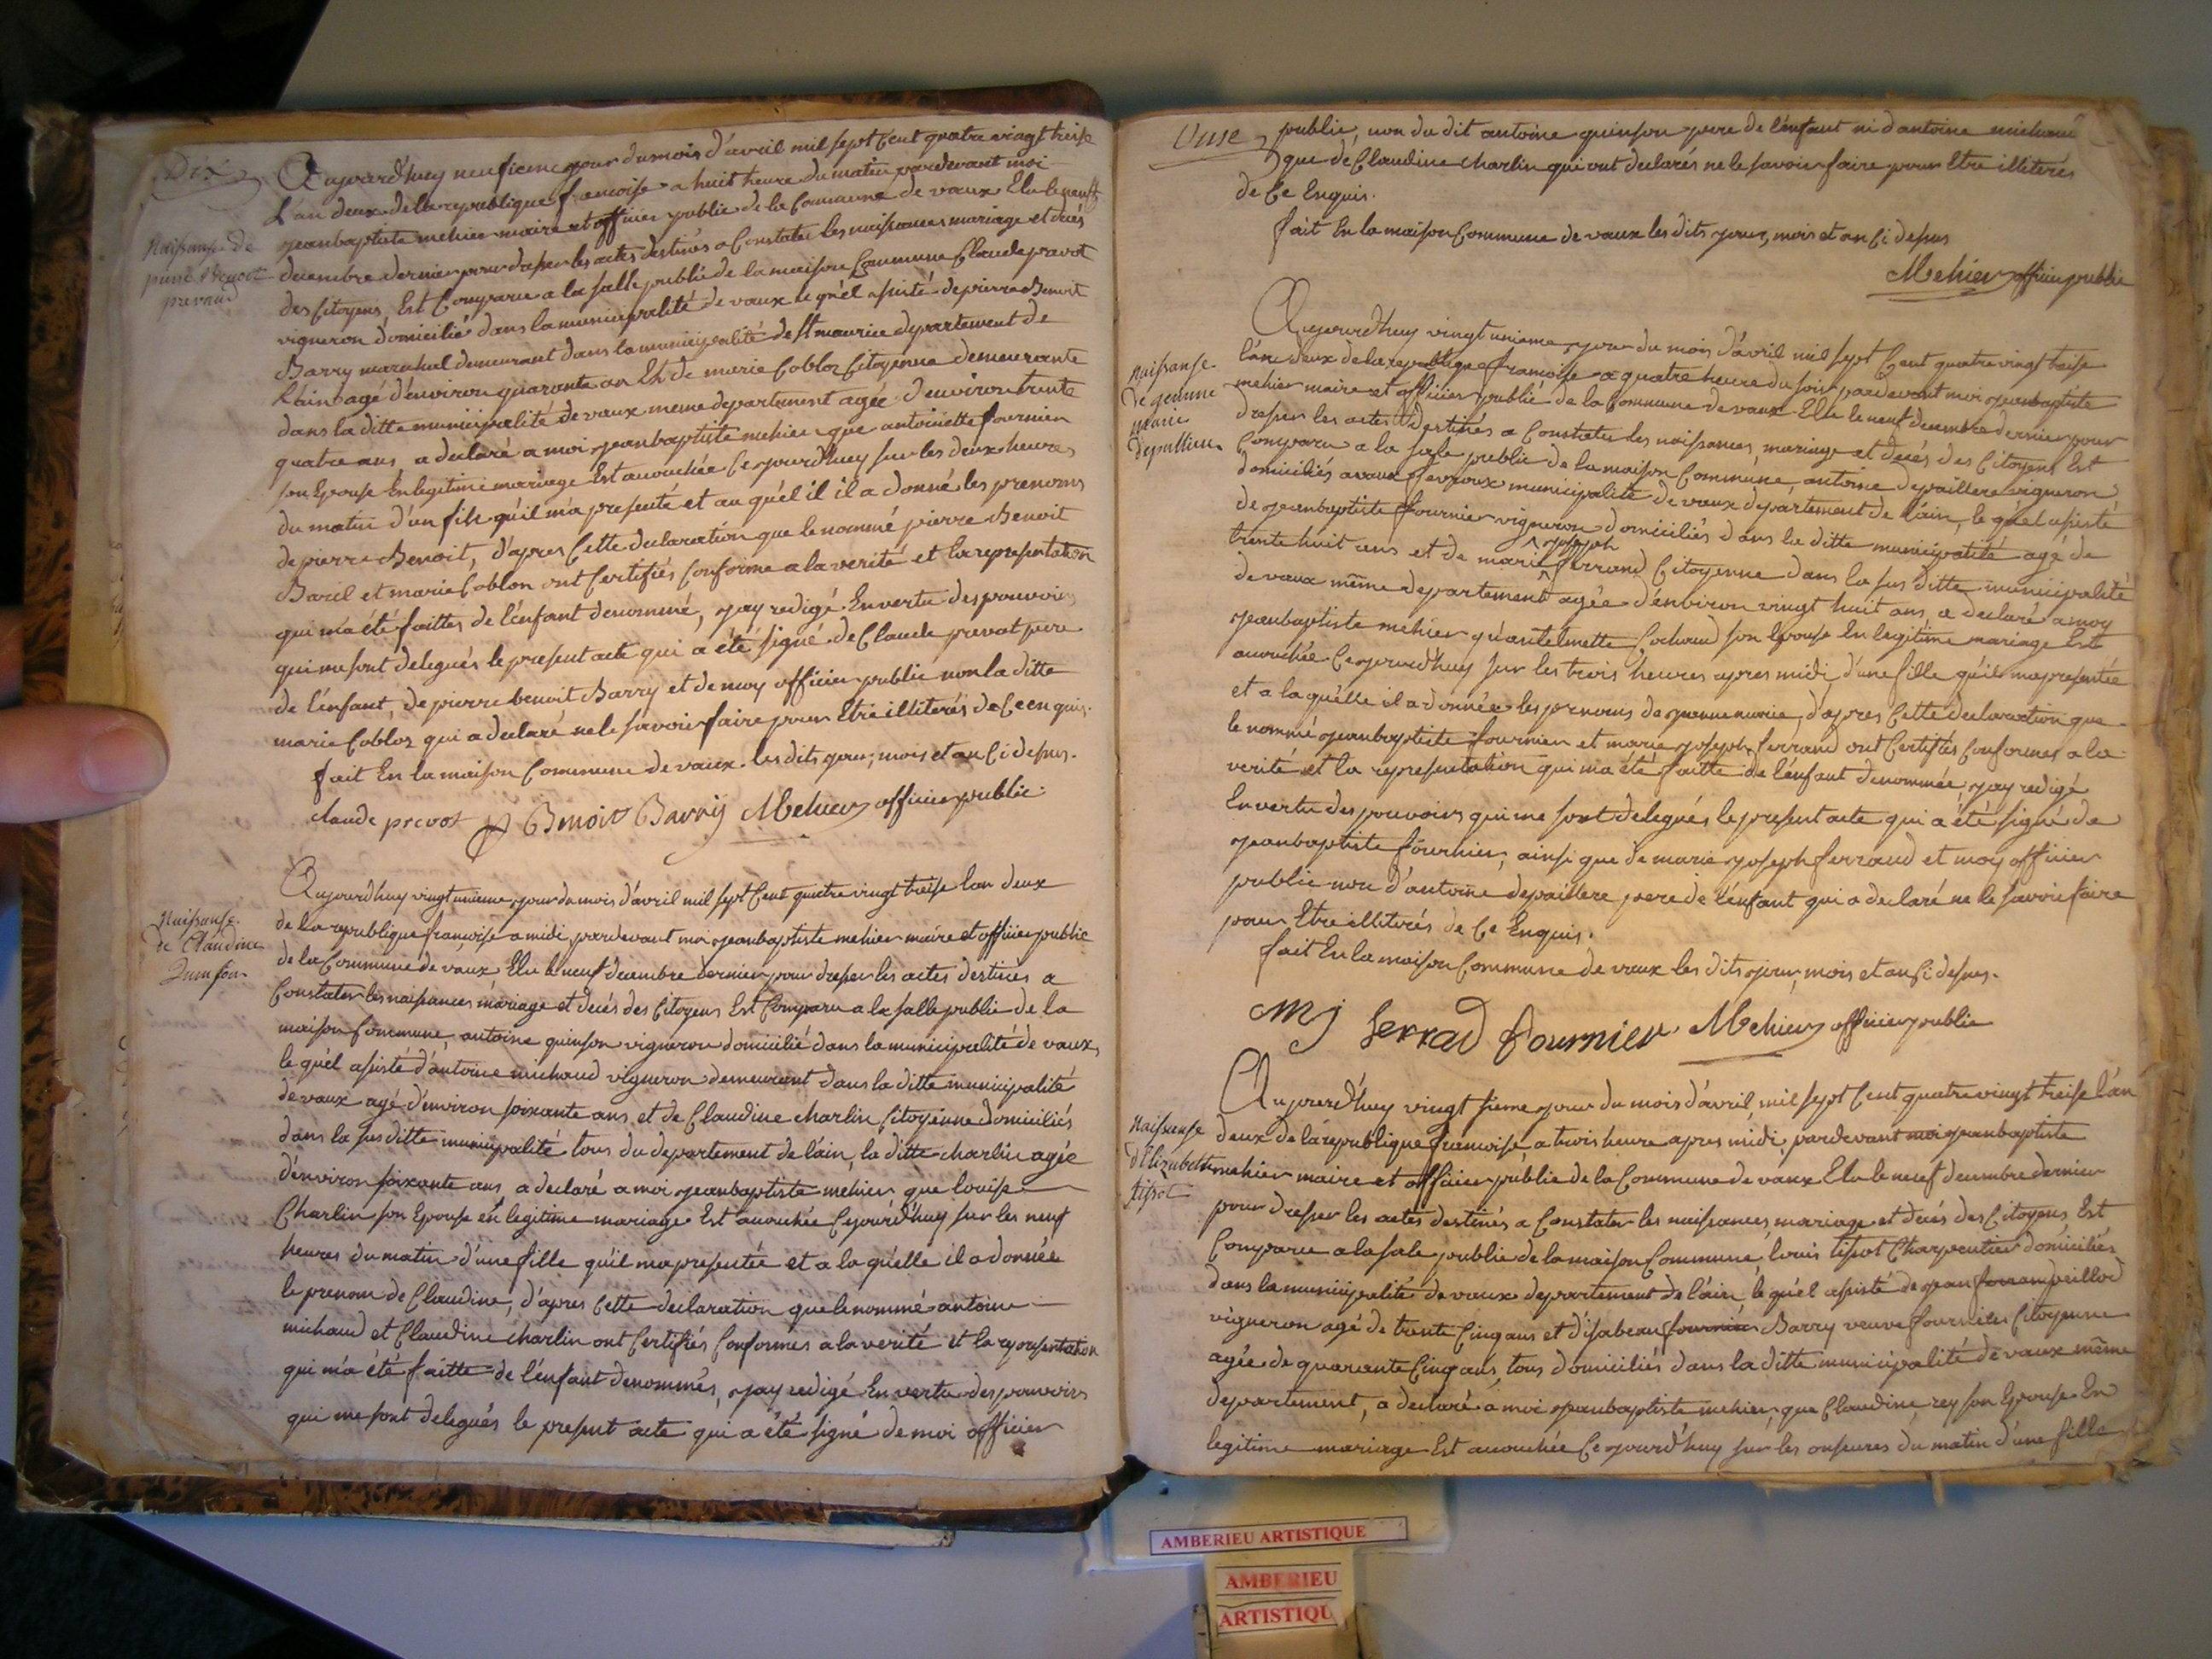 Dix
Naissanse de
pierre Benoit
prevaud
Aujourdhuy neufieme jour du mois d'avril mil sept Cent quatre vingt treise
L'an deux de la republique francoise a huit heure du matin pardevant moi
jeanbaptiste mehier maire et officier public de la Commune de vaux Elu le neuf
decembre dernier pour dresser les actes destinés a Constater les naissances mariage et decés
des Citoyens, Est Comparu a la salle public de la maison Commune Claude prevot
vigneron domicilié dans la municipalité de vaux le quel assisté de pierre Benoit
Barry marechal demeurant dans la municipalité de st maurice departement de
l'ain agé d'environ quarante an Et de marie Cobloz Citoyenne demeurante
dans la ditte municipalité de vaux meme departement agée d'environ trente
quatre ans a declaré a moi jeanbaptiste mehier que antoinette fournier
son Epouse En legitime mariage Est accouchée Cejourdhuy sur les deux heures
du matin d'un fils qu'il m'a presenté et au quél il il a donné les prenoms
de pierre Benoit, d'apres Cette declaration que le nommé pierre Benoit
Baril et marie Coblon ont Certifiés Conforme a la verité et la representation
qui m'a été faittes de l'enfant denommé, j'ay redigé En vertu des pouvoirs
qui me sont delegués le present acte qui a été signé de Claude prevot pere
de l'enfant, de pierre benoit Barry et de moy officier public non la ditte
marie Cobloz qui a declaré ne le savoir faire pour Etre illiterés de Ce enquis.
fait En la maison Commune de vaux. les dits jour, mois et an Ci dessus.
claude prevot P Benoit Barry Mehier officier public.
Naissanse
de Claudine
Quinson
Aujourdhuy vingt unieme jour du mois d'avril mil sept Cent quatre vingt treise lan deux
de la republique francoise a midi, pardevant moi jeanbaptiste mehier maire et officier public
de la Commune de vaux Elu le neuf decembre dernier pour dresser les actes destinés a
Constater les naissances mariage et decés des Citoyens Est Comparu a la salle public de la
maison Commune, antoine quinson vigneron domicilié dans la municipalité de vaux,
le quél assisté d'antoine michaud vigneron demeurant dans la ditte municipalité
de vaux agé d'environ soixante ans, et de Claudine charlin Citoyenne domiciliés
dans la sus ditte municipalité tous du departement de l'ain, la ditte charlin agée
d'environ soixante ans, a declaré a moi jeanbaptiste mehier, que louise
Charlin son Epouse en legitime mariage Est accouchée Cejourd'huy sur les neuf
heures du matin d'une fille qu'il ma presentée et a la quélle il a donnée
le prenom de Claudine, d'apres Cette declaration que le nommé antoine
michaud et Claudine charlin ont Certifiés Conformes a la verité et la representation
qui m'a été faitte de l'enfant denommés, j'ay redigé En vertu des pouvoirs
qui me sont delegués le present acte qui a été signé de moi officier
Onse
public, non du dit antoine quinson pere de l'enfant ni d'antoine michaud
que de Claudine charlin qui ont declarés ne le savoir faire pour Etre illiterés
de Ce Enquis.
fait En la maison Commune de vaux les dits jour, mois et an Ci dessus
Mehier officier public
Naissanse
de jeanne
marie
depallieu
Aujourdhuy vingt unieme jour du mois d'avril mil sept Cent quatre vingt treise
l'an deux de la republique francoise a quatre heure du soir pardevant moi jeanbaptiste
mehier maire et officier public de la Commune de vaux Elu le neuf decembre dernier pour
dresser les actes destinés a Constater les naissances, mariage et decés des Citoyens Est
Comparu a la sale public de la maison Commune, antoine depaillere vigneron
domiciliés a vaux fevroux municipalité de vaux departement de l'ain, le quél assisté
de jeanbaptiste fournier vigneron domiciliés dans la ditte municipalité agé de
trente huit ans et de marie joseph ferrand Citoyenne dans la sus ditte municipalité
de vaux même departement agée d'environ vingt huit ans, a declaré a moy
jeanbaptiste mehier qu'antelmette Cochand son Epouse En legitime mariage Est
accouchée Cejourdhuy sur les trois heures apres midi d'une fille qu'il ma presentée
et a la quélle il a donnée les prenoms de jeanne marie, d'apres Cette declaration que
le nommé jeanbaptiste fournier et marie joseph ferrand ont Certifiés Conformes a la
verité et la representation qui m'a été faitte de l'enfant denommée, j'ay redigé
En vertu des pouvoirs qui me sont delegués le present acte qui a été signé de
jeanbaptiste fournier, ainsi que de marie joseph ferrand et moy officier
public non d'antoine depaillere pere de l'enfant qui a declaré ne le savoir faire
pour Etre illiterés de Ce Enquis.
fait En la maison Commune de vaux les dits jour, mois et an Ci dessus.
mj ferrad fournier Mehier officier public
Naissanse
d'Elizabeth
tissot
Aujourd'huy vingt sieme jour du mois d'avril mil sept Cent quatre vingt treise l'an
deux de la republique francoise, a trois heure apres midi, pardevant moi jeanbaptiste
mehier maire et officier public de la Commune de vaux Elu le neuf decembre dernier
pour dresser les actes destinés a Constater les naissances, mariage et decés des Citoyens Est
Comparu a la sale public de la maison Commune, louis tissot Charpentier domiciliés
dans la municipalité de vaux departement de l'ain le quél assisté de jean peillod
vigneron agé de trente Cinq ans et d'isabeau fournier Barry veuve fournier Citoyenne
agée de quarante Cinq ans, tous domiciliés dans la ditte municipalité de vaux même
departement, a declaré a moi jeanbaptiste mehier, que Claudine rey son Epouse En
legitime mariage Est accouchée Cejourd'huy sur les onse heures du matin d'une fille
AMBERIEU ARTISTIQUE
AMBERIEU
ARTISTIQU